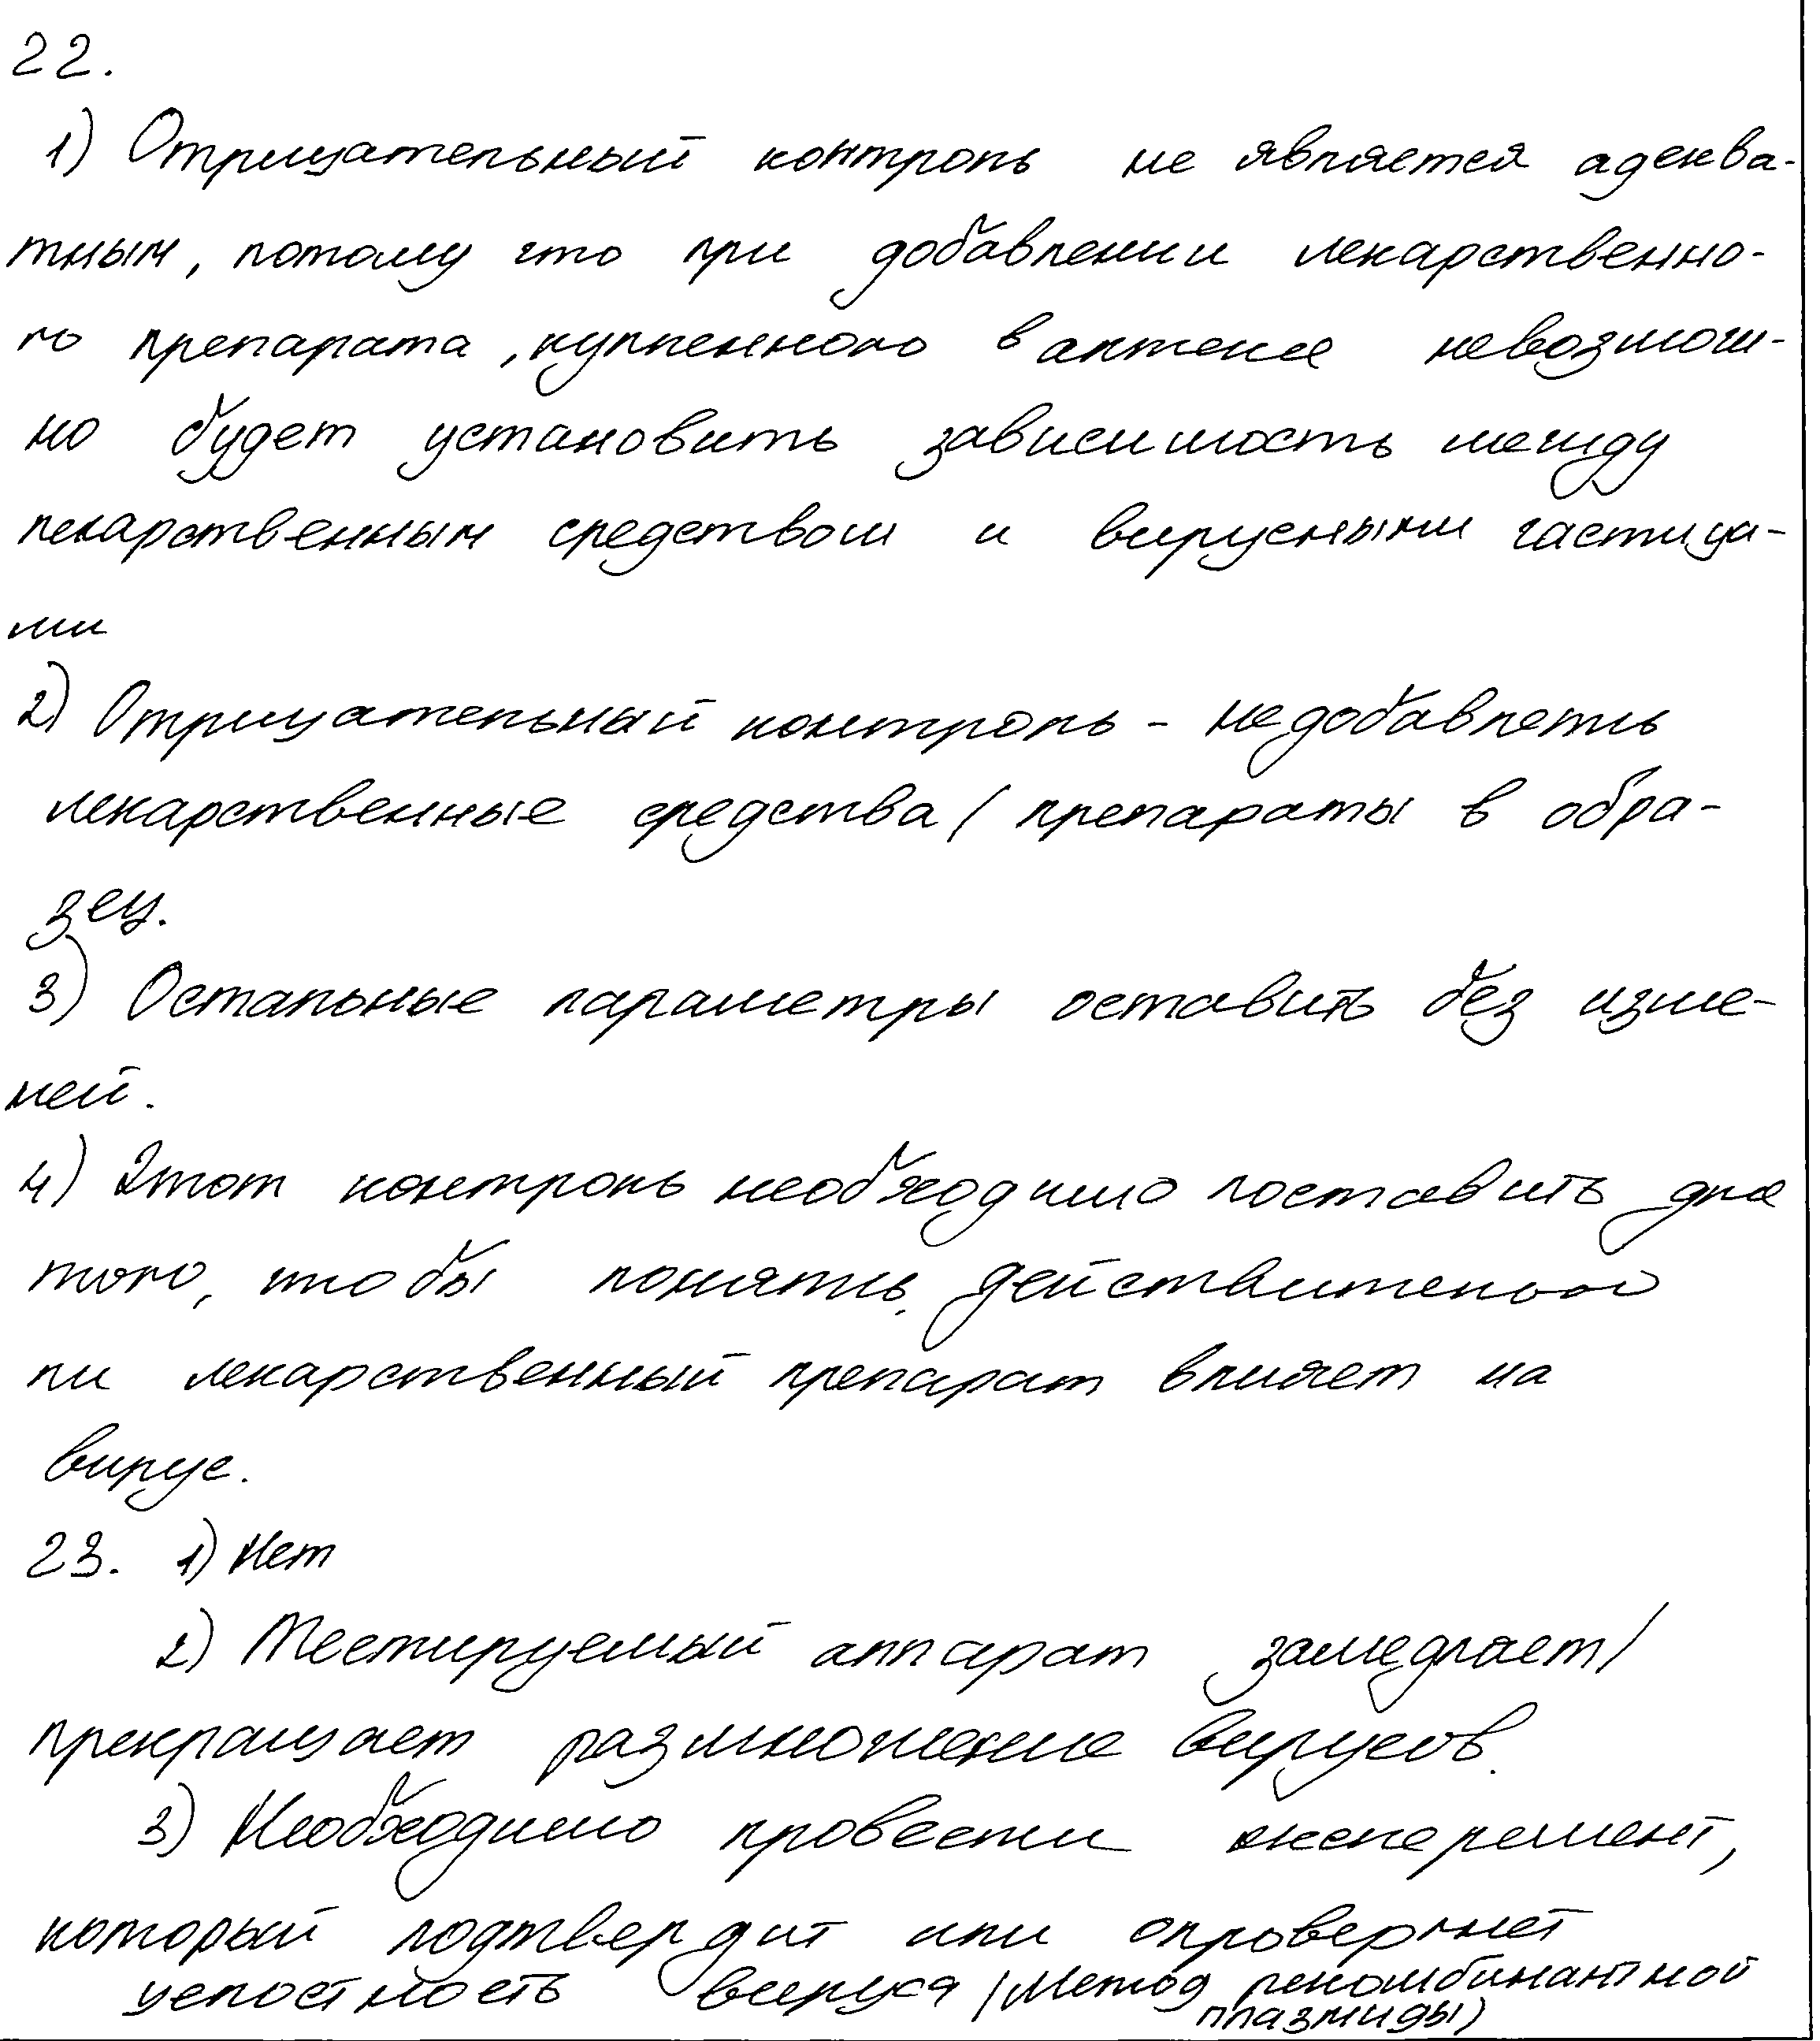 22.
1) Отрицательный контроль не является адеква-
тным, потому что при добавлении лекарственно-
го препарата, купленного в аптеке невозмож-
но будет установить зависимость между
лекарственным средством и вирусными частица-
ми
2) Отрицательный контроль - не добавлеть
лекарственные средства / препараты в обра-
зец.
3) Остальные параметры оставить без изме-
ней.
4) Этот контроль необходимо поставить для
того, чтобы понять, действительно
ли лекарственный препарат влияет на
вирус.
23. 1) Нет
2) Тестируемый аппарат замедляет/
прекращает размножение вирусов.
3) Необходимо провести эксперемент,
который подтвердит или опровергнет
целостность вируса (Метод рекомбинантной
плазмиды)